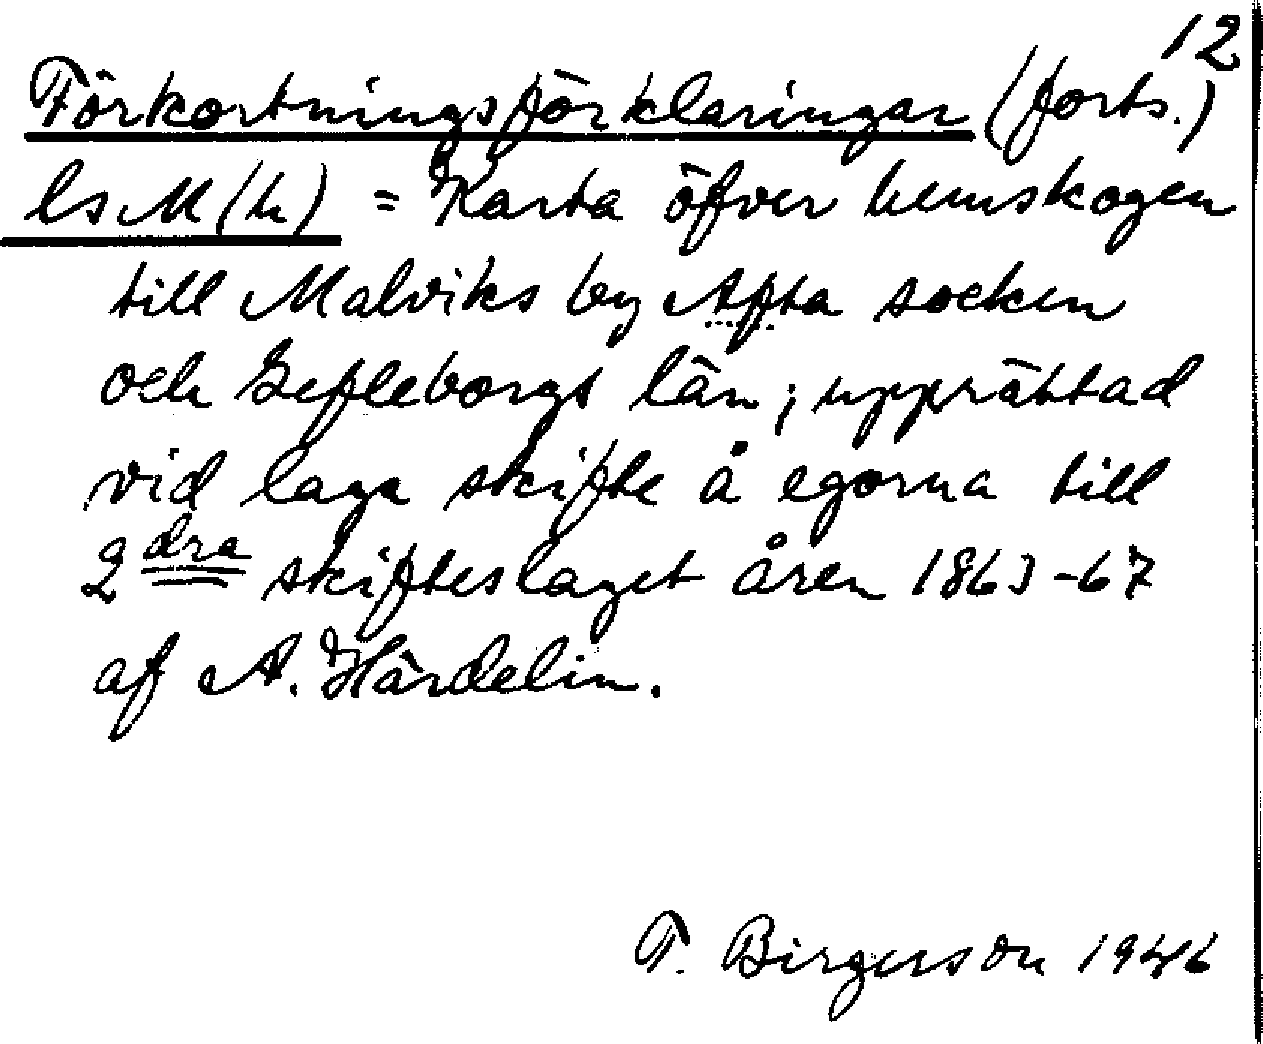 12
Förkortningsförklaringar (forts.)
ls M (h) = Karta öfver hemskogen
till Malviks by Afta socken
och Gefleborgs län; upprättad
vid laga skifte å egorna till
2dra skifteslaget åren 1863-67
af A. Härdelin.
T. Birgerson 1946